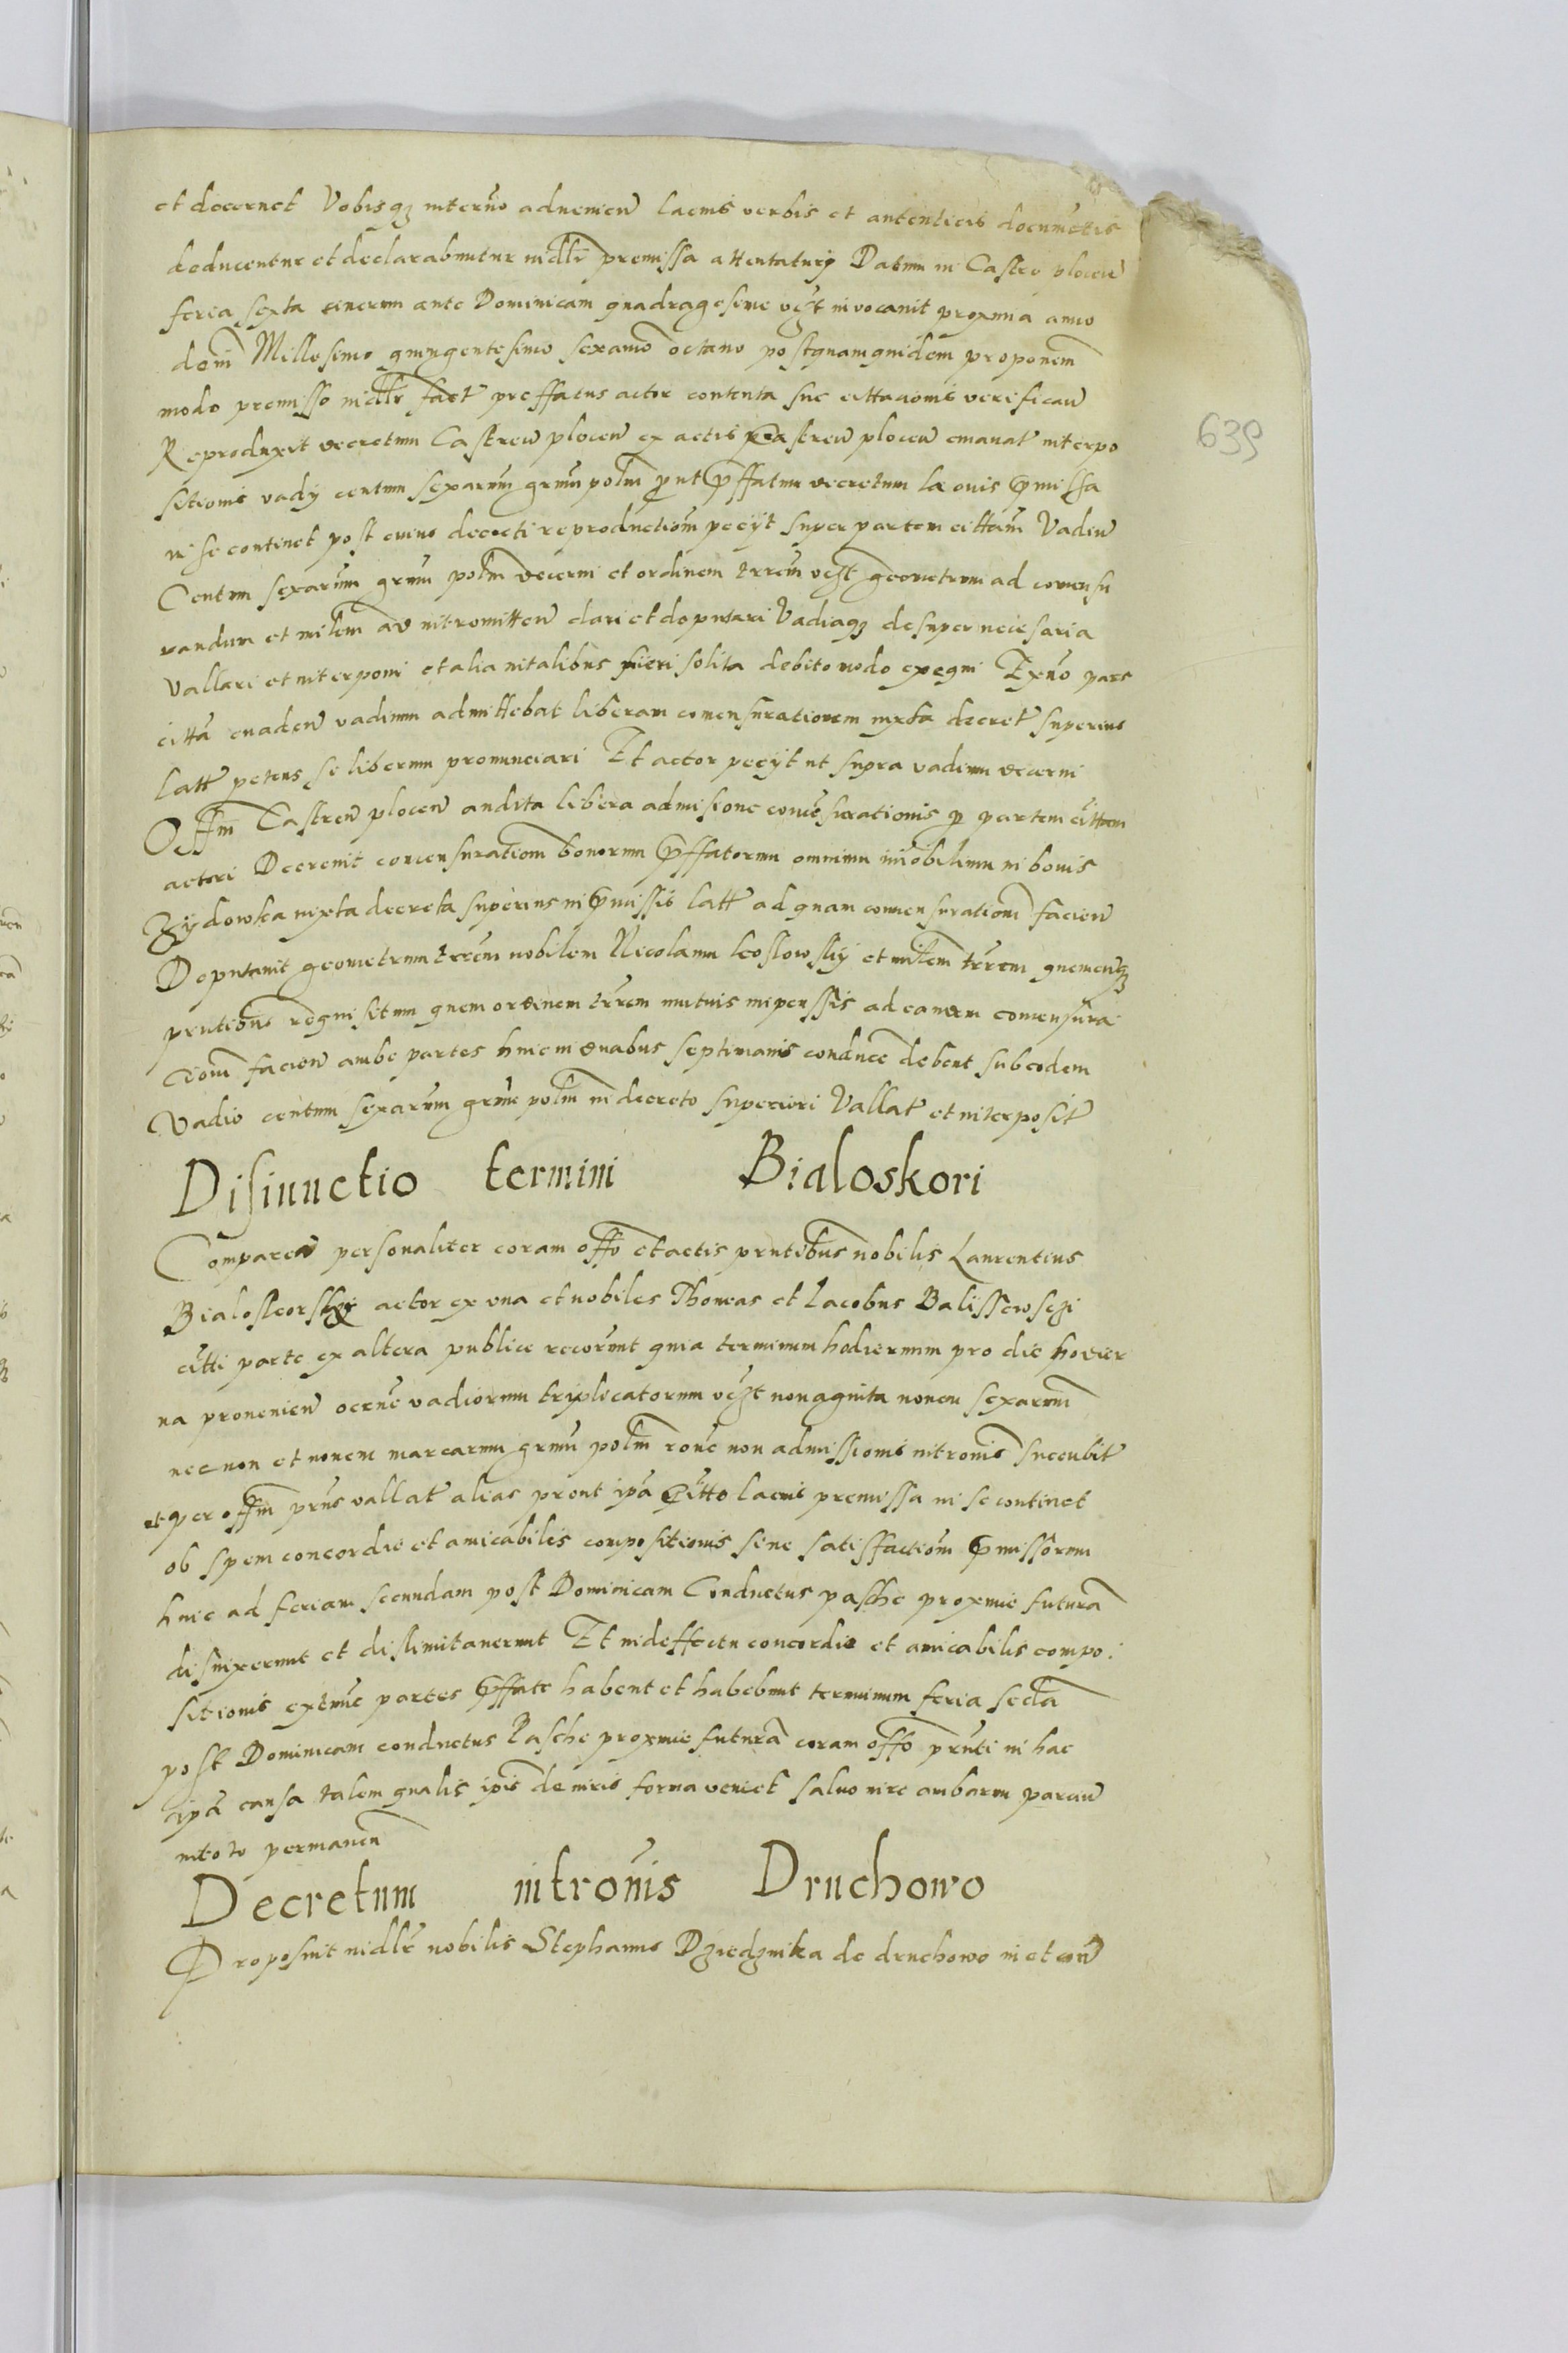 et decernet Vobisqz interno advenien lacius verbis et autenticis documetis
deducentur et declarabuntur iudlr premissa attentaturi Datum in Castro plocen
feria sexta cinerum ante Dominicam quadragesime vezt invocavit proxima anno
dom Millesimo quingentesimo sexamo octavo postquamquidem proponem
modo premisso iudlr fact preffatus actor contenta sue cittacionis verifican
Reproduxit decretum Castren plocen ex actis castren plocen emanat interpo
sitionis vadij centum sexarum grum polm put pffatum decretum lacius pmissa
in se continet post cuius decreti reproductiom peciit super partem cittam Vadium
Centum sexarum grum polm decerni et ordinem trrem vezt geometrum ad comensu
randum et milem ad intromitten dari et deputari Vadiaqz desuper necessaria
Vallari et interponi et alia in talibus fieri solita debito modo exequi Exuo pars
citta evaden vadium admittebat liberam comensurationem iuxta decret superius
latt petens se liberum pronunciari Et actor peciit ut supra vadium decerni
Offm Castren plocen audita libera admisione comesurationis p partem cittam
actori Decrevit comensuratiom bonorum pffatorum omnium imobilium in bonis
Zydowka iuxta decreta superius in pmissis latt ad quam comensurationi facien
Deputavit geometrum trrem nobilem Nicolaum koslowskij et milem trrem quemcunqz
prntibus requisitum quem ordinem trrem mutuis inpenssis ad eandem comensura
ciom facien ambe partes hinc in duabus septimanis conduce debent sub eodem
Vadio centum sexarum grum polm in decreto superiori Vallat et interposit
Disiunctio termini Bialoskori
Comparen personaliter coram offo et actis prntibus nobilis Laurentius
Bialoskorski actor ex una et nobiles Thomas et Jacobus Balissewsczi
citti parte ex altera publice recorunt quia terminum hodiernum pro die hodier
na provenien ocene vadiorum triplicatorum vezt nonaginta novem sexarum
nec non et novem marcarum grum polm rone non admissionis intronis succubit
et per offm prius vallat alias prout ipa citto lacius premissa in se continet
ob spem concordie et amicabilis compositionis sine satisfactiom pmissorum
hinc ad feriam secundam post Dominicam Conductus pasche proxime futura
disiuxerunt et dislimitaverunt Et in deffectu concordie et amicabilis compo
sitionis extunc partes pffate habent et habebunt terminum feria secda
post Dominicam conductus Pasche proxime futura coram offo prnti in hac
ipa causa talem qualis ipis de iuris forma veniet salvo iure ambarum parcium
in toto permanen
Decretum intronis Druchowo
Proposuit iudlr nobilis Stephanus Dziedznika de druchowo in et con
639